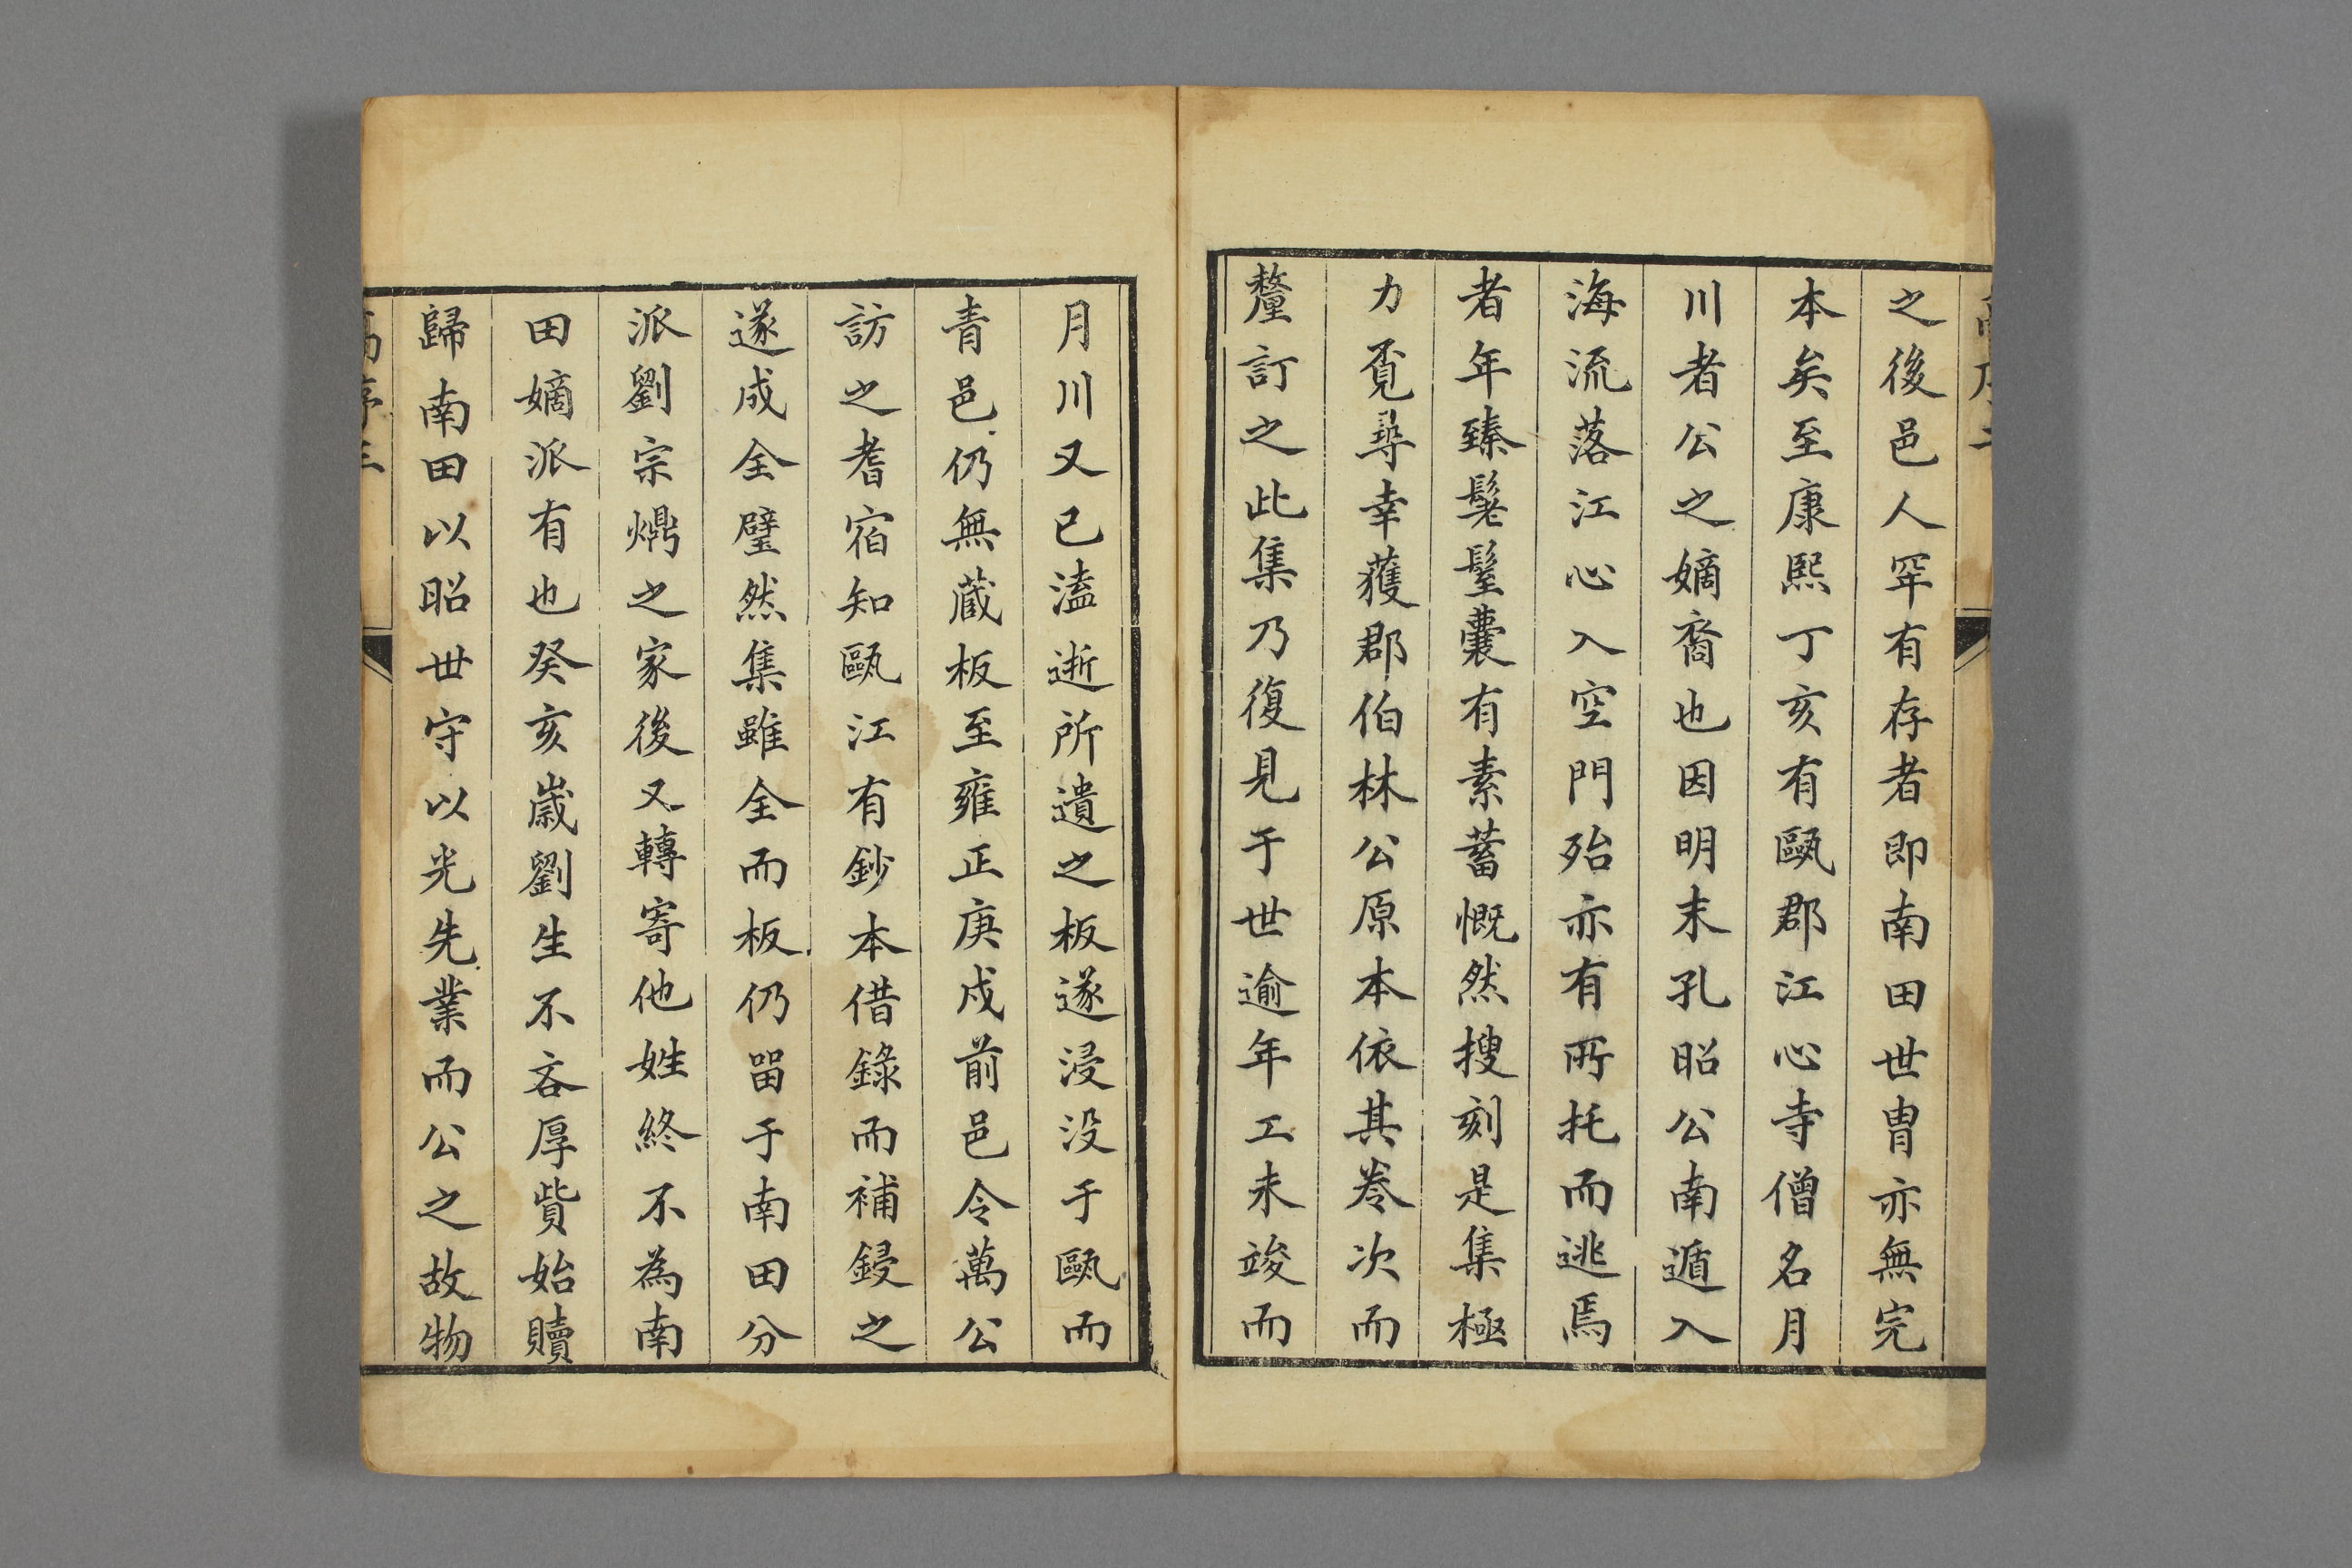 之後邑人罕有存者即南田世胄亦無完
本矣至康熙丁亥有甌郡江心寺僧名月
川者公之嫡裔也因明末孔昭公南遁入
海流落江心入空門殆亦有所托而逃焉
者年臻髦耋囊有素蓄慨然搜刻是集極
力覓尋幸獲郡伯林公原本依其卷次而
釐訂之此集乃復見于世逾年工未竣而
月川又已溘逝所遺之板遂浸没于甌而
青邑仍無蔵板至雍正庚戌前邑令萬公
訪之耆宿知甌江有鈔本借錄而補鋟之
遂成全璧然集雖全而板仍畱于南田分
派劉宗爌之家後又轉寄他姓終不為南
田嫡派有也癸亥嵗劉生不吝厚貲始贖
歸南田以昭世守以光先業而公之故物